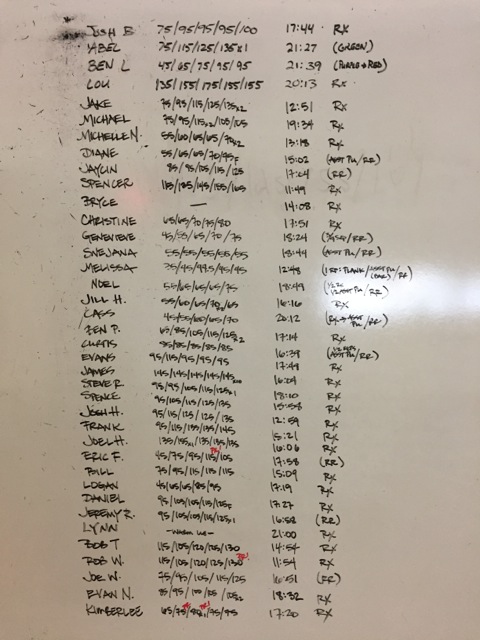 JOSH B 75/95/95/95/100 17:44 RX
ABEL 75/115/125/135x1 21:27 (GREEN)
BEN L 45/65/75/95/95 21:39 (PURPLE+RED)
LOU 135/155/175/155/155 20:13 RX
JAKE 75/95/115/125/135x2 12:51 RX
MICHAEL 75/95/115x2/105/105 19:34 RX
MICHELLE M. 55/60/65/65/70x2 13:18 RX
DIANE 55/65/65/70/75F 15:02 (ASST PU/RR)
JAYLIN 85/95/105/115/125 17:04 (RR)
SPENCER 115/135/145/155/165 11:49 RX
BRYCE — 14:08 RX
CHRISTINE 65/65/70/75/80 17:51 RX
GENEVIEVE 45/55/65/70/75 18:24
SNEJANA 55/55/55/55/55 18:44 (ASST PU/RR)
MELISSA 75/95/95/95 12:48
NOEL 55/65/65/65/75 18:49
JILL H. 55/60/65/70/65 16:16 RX
CASS 45/55/60/65/70 20:12
BEN P. 65/85/105/115/125x2 17:14 RX
CURTIS 85/85/85/85 16:39 (ASST PU/RR)
EVANS 95/115/95/95/95 17:49 RX
JAMES 145/145/145/145/145 16:04 RX
STEVE R. 95/95/105/115/125x1 18:10 RX
SPENCE 95/105/115/125/135 15:58 RX
JOSH H. 95/115/125/125/135 12:59 RX
FRANK 95/115/135/135/145 15:21 RX
JOEL H. 135/155x1/135/135/135 16:06 RX
ERIC F. 45/75/95/115/105 17:58 (RR)
BILL 75/95/115/115/115 15:09 RX
LOGAN 45/65/65/85/95 17:19 RX
DANIEL 95/105/105/115/125F 17:27 RX
JEREMY R. 95/105/105/115/125x1 16:58 (RR)
LYNN 21:00 RX
BOB T 115/105/120/125/130 14:54 RX
ROB W. 115/105/120/125/130 PR! 11:54 RX
JOE W. 75/95/105/115/125 16:51 (RR)
EVAN N. 85/95/100/105/105x2 18:32 RX
KIMBERLEE 65/75/80x1/75/85 17:20 RX